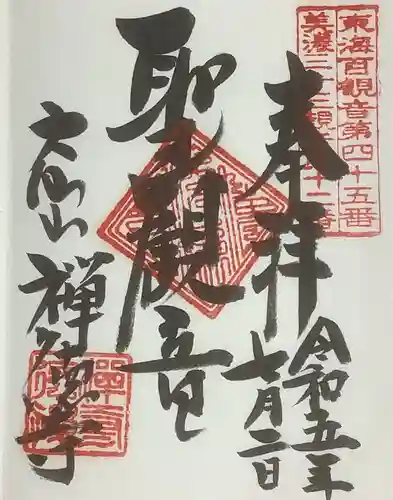 東海百観音第四十五番
美濃三十三 十二番
奉拝
令和五年
七月二日
聖観音
大仙山
禅徳寺